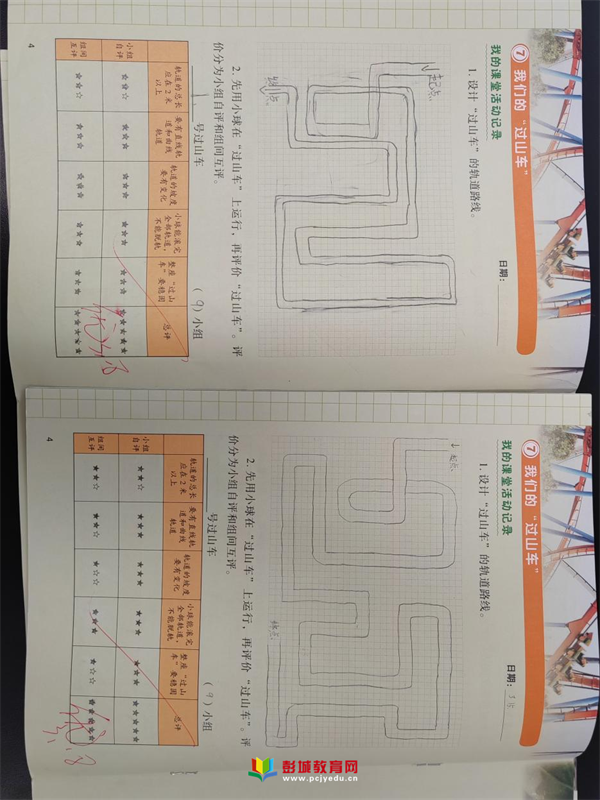 7 我们的“过山车”
日期:
我的课堂活动记录
1. 设计“过山车”的轨道路线。
起点
2. 先用小球在“过山车”上运行,再评价“过山车”。评
价分为小组自评和组间互评。
号过山车 (9)小组
轨道的总长应在2米以上
要有直线轨道和曲线轨道
轨道的坡度要有变化
小球能滚完全部轨道,不能脱轨
整座“过山车”要稳固
总评
小组自评 ★★☆ ★★★ ★★★ ★★★ ★★★
组间互评
4
7 我们的“过山车”
日期:
我的课堂活动记录
1. 设计“过山车”的轨道路线。
起点
终点
2. 先用小球在“过山车”上运行,再评价“过山车”。评
价分为小组自评和组间互评。
号过山车 (9)小组
轨道的总长应在2米以上
要有直线轨道和曲线轨道
轨道的坡度要有变化
小球能滚完全部轨道,不能脱轨
整座“过山车”要稳固
总评
小组自评
组间互评
4
彭城教育网
www.pcjyedu.cn